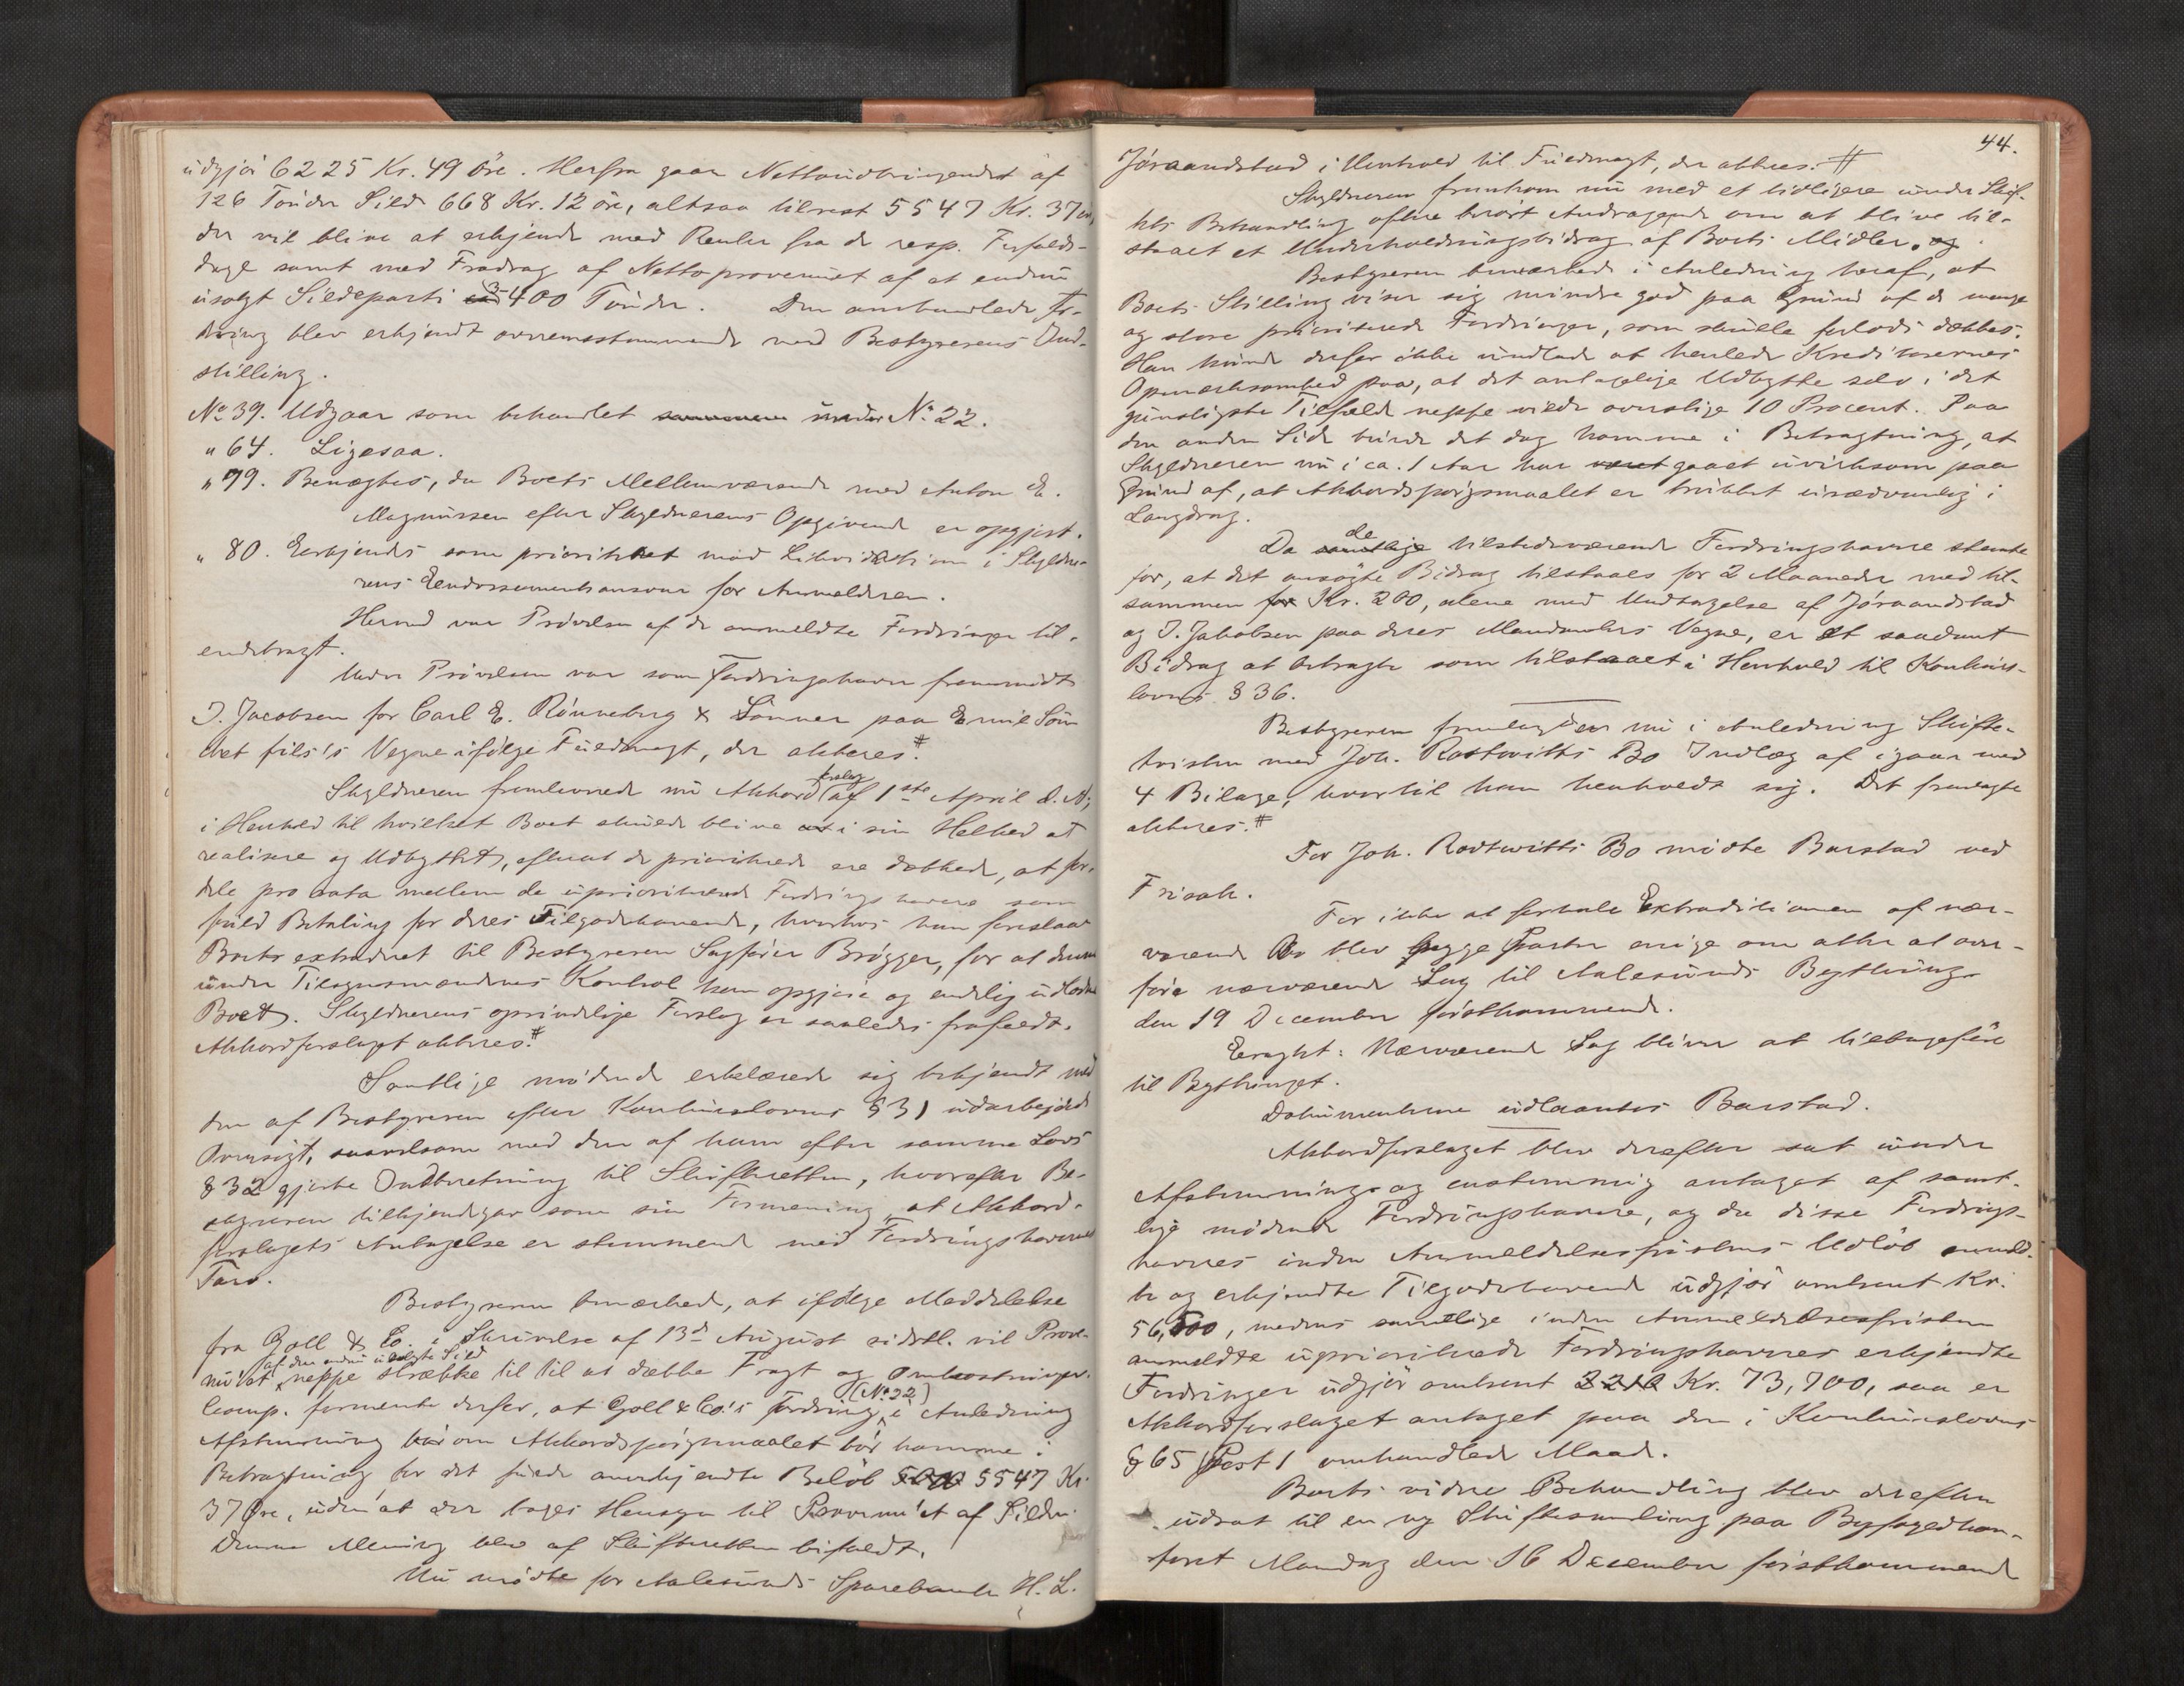 udgjör 6225 Kr. 49 Öre. Herfra gaar Nettoudbringendet af
126 Tönder Sild 668 Kr. 12 öre, altsaa tilrest 5547 Kr. 37 öre,
der vil blive at erkjende med Renter fra de resp. Forfalds-
dage samt med Fradrag af Nettoprovenuet af et endnu
usolgt Sildeparti 3-400 Tönder. Den omhandlede For-
dring blev erkjendt overensstemmende med Bestyrerens Ind-
stilling.
No 39. Udgaar som behandlet sammen under No 22.
" 64. Ligesaa.
" 79. Benægtes, da Boets Mellemværende med Anton E.
Magnussen efter Skyldnerens Opgivende er opgjort.
" 80. Erkjendes som prioritetet mod Likvidation i Skyldne-
rens Endossementsansvar for Anmelderen.
Hermed var Prövelsen af de anmeldte Fordringer til-
endebragt.
Under Prövelsen var som Fordringshaver fremmödt
J. Jacobsen for Carl E. Rönneberg & Sönner paa Emile Sou
chet fils's Vegne ifölge Fuldmagt, der akteres.#
Skyldneren fremleverede nu Akkordforslag af 1ste April d. A.,
i Henhold til hvilket Boet skulde blive at i sin Helhed at
realisere og Udbyttet, efterat de prioriterede ere dækkede, at for-
dele pro rata mellem de uprioriterede Fordringshavere som
fuld Betaling for deres Tilgodehavende, hvorhos han foreslaar
Boets extraderet til Bestyreren Sagförer Brögger, for at denne
under Tilsynsmændenes Kontrol kan opgjöre og endelig udlodde
Boet. Skyldnerens oprindelige Forslag er saaledes frafaldt.
Akkordforslaget akteres.#
Samtlige mödende erklærede sig bekjendt med
den af Bestyreren efter Konkurslovens § 31 udarbeidede
Oversigt, saavelsom med den af ham efter samme Lovs
§ 32 gjorte Indberetning til Skifteretten, hvorefter Be-
styreren tilkjendegav som sin Formening, at Akkord-
forslagets Antagelse er stemmende med Fordringshavernes
Tarv.
Bestyreren bemærkede, at ifölge Meddelelse
fra Goll & Co. i Skrivelse af 13de August sidstl. vil Prove-
nuet af den endnu usolgte Sild neppe strække til til at dække Fragt og Omkostninger.
Comp. formente derfor, at Goll & Co.'s Fordring (No 22) i Anledning
Afstemning bör om Akkordspörgsmaalet bör komme i
Betragtning for det fulde anerkjendte Belöb 5547 Kr.
37 Öre, uden at der tages Hensyn til Provenuet af Silden.
Denne Mening blev af Skifteretten bifaldt.
Nu mödte for Aalesunds Sparebank H. L.
44.
Jöraandstad i Henhold til Fuldmagt, der akteres.#
Skyldneren fremkom nu med et tidligere under Skif-
tets Behandling oftere berört Andragende om at blive til-
staaet et Underholdningsbidrag af Boets Midler. og
Bestyreren bemærkede i Anledning heraf, at
Boets Stilling viser sig mindre god paa Grund af de mange
og store prioriterede Fordringer, som skulle forlods dækkes.
Han kunde derfor ikke undlade at henlede Kreditorernes
Opmærksomhed paa, at det antagelige Udbytte selv i det
gunstigste Tilfælde neppe vilde overstige 10 Procent. Paa
den anden Side burde det dog komme i Betragtning, at
Skyldneren nu i ca. 1 Aar har været gaaet uvirksom paa
Grund af, at Akkordspörgsmaalet er trukket usædvanlig i
Langdrag.
Da de samtlige tilstedeværende Fordringshavere stemte
for, at det ansögte Bidrag tilstaaes for 2 Maaneder med til-
sammen for Kr. 200, alene med Undtagelse af Jöraandstad
og J. Jakobsen paa deres Mandanters Vegne, er et saadant
Bidrag at betragte som tilstaaet i Henhold til Konkurs-
lovens § 36.
Bestyreren fremlagde nu i Anledning Skifte-
tvisten med Joh. Rodtwitts Bo Indlæg af igaar med
4 Bilage, hvortil han henholdt sig. Det fremlagte
akteres.#
For Joh. Rodtwitts Bo mödte Barstad ved
Frisak.
For ikke at forhale Extraditionen af nær-
værende Bo blev begge Parter enige om atter at over-
före nærværende Sag til Aalesunds Bything
den 19 December förstkommende.
Eragtet: Nærværende Sag bliver at tilbageföre
til Bythinget.
Dokumenterne udlaantes Barstad.
Akkordforslaget blev derefter sat under
Afstemning og enstemmig antaget af samt-
lige mödende Fordringshavere, og da disse Fordrings-
haveres inden Anmeldelsesfristens Udlöb anmeld-
te og erkjendte Tilgodehavende udgjör omtrent Kr.
56,500, medens samtlige inden Anmeldelsesfristen
anmeldte uprioriterede Fordringshaveres erkjendte
Fordringer udgjör omtrent Kr. 73,700, saa er
Akkordforslaget antaget paa den i Konkurslovens
§ 65 Post 1 omhandlede Maade.
Boets videre Behandling blev derefter
udsat til en ny Skiftesamling paa Byfogedkon-
toret Mandag den 16 December förstkommende